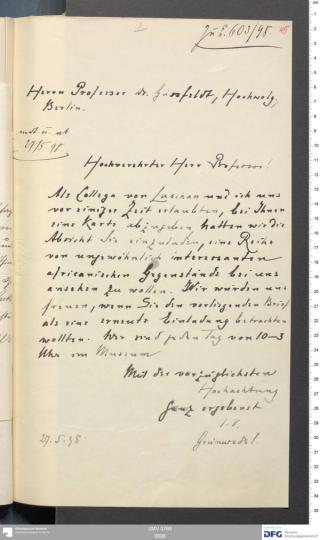 Zu E. 603/98.
Herrn Professor Dr. Güssfeldt, Hochwolg.,
Berlin.
mdt. u. ab
27/5 98
Hochverehrter Herr Professor!
Als College von Luschan und ich uns
vor einiger Zeit erlaubten, bei Ihnen
eine Karte abzugeben, hatten wir die
Absicht Sie einzuladen, eine Reihe
von ungewöhnlich interessanten
africanischen Gegenstände bei uns
ansehen zu wollen. Wir würden uns
freuen, wenn Sie den vorliegenden Brief
als eine erneute Einladung betrachten
wollten. Wir sind jeden Tag von 10–3
Uhr im Museum
Mit der vorzüglichsten
Hochachtung
Ganz ergebenst
I. V.
Grünwedel.
27.5.98